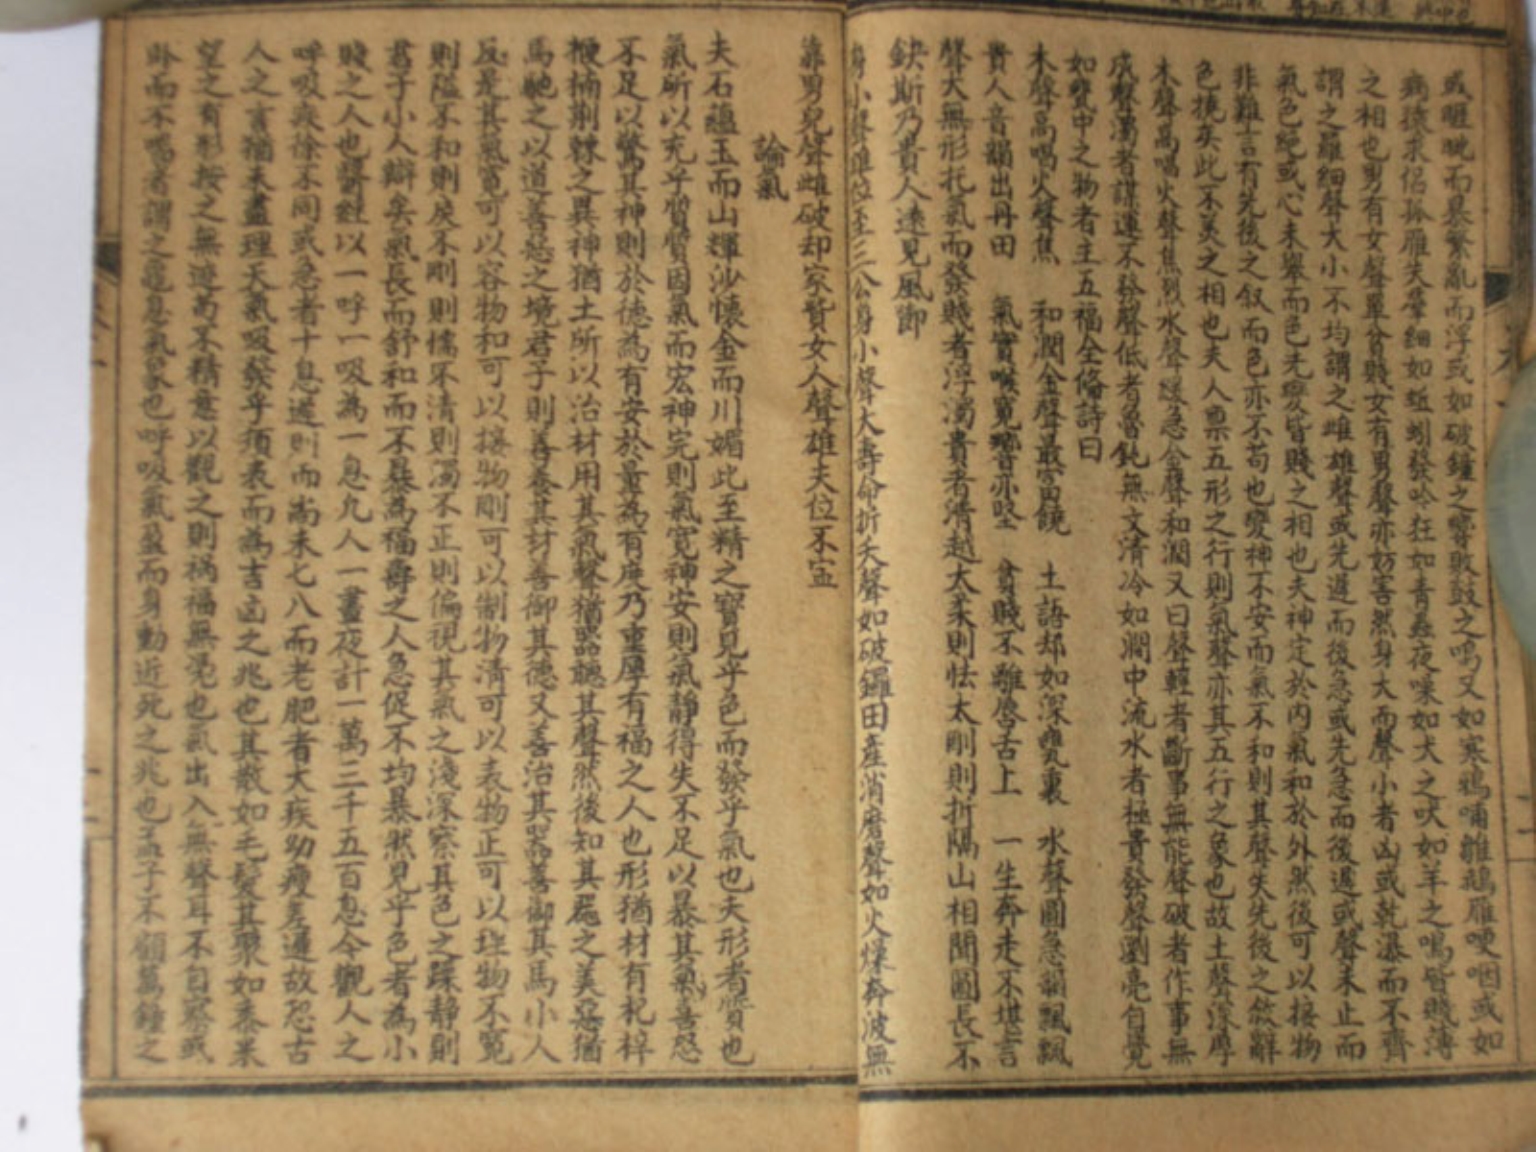 或睚眦而暴繁亂而浮或如破鐘之響敗鼓之鳴又如寒鴉哺雛鵝雁哽咽或如
病猿求侶孤雁失羣細如蚯蚓發吟狂如青蛙夜噪如犬之吠如羊之鳴皆賤薄
之相也男有女聲單貧賤女有男聲亦妨害然身大而聲小者凶或乾濕而不齊
謂之羅細聲大小不均謂之雌雄聲或先遲而後急或先急而後遲或聲未止而
氣色絕或心未舉而色先變皆賤之相也夫神定於內氣和於外然後可以接物
非難言有先後之叙而色亦不苟也變神不安而氣不和則其聲失先後之敘辭
色撓矣此不美之相也夫人禀五形之行則氣聲亦其五行之象也故土聲深厚
木聲高唱火聲焦烈水聲緩急金聲和潤又曰聲輕者斷事無能聲破者作事無
成聲濁者謀運不發聲低者魯鈍無文清冷如澗中流水者極貴發聲瀏亮自覺
如甕中之物者主五福全俻詩曰
木聲高唱火聲焦 和潤金聲最富饒 土語却如深甕裏 水聲圓急韻飄飄
貴人音韻出丹田 氣實喉寬響亦堅 貧賤不離唇舌上 一生奔走不堪言
聲大無形托氣而發賤者浮濁貴者清越太柔則怯太剛則折隔山相聞圓長不
缺斯乃貴人遠見風節
身小聲雄位至三公身小聲大壽命折夭聲如破鑼田產消磨聲如火燥奔波無
靠男兒聲雌破却家貲女人聲雄夫位不宐
論氣
夫石蘊玉而山輝沙懷金而川媚此至精之寶見乎色而發乎氣也夫形者質也
氣所以充乎質質因氣而宏神完則氣寬神安則氣靜得失不足以暴其氣喜怒
不足以驚其神則於德為有安於量為有度乃重厚有福之人也形猶材有杞梓
楩楠荆棘之異神猶土所以治材用其氣聲猶器聽其聲然後知其噐之美惡猶
馬馳之以道善惡之境君子則善養其材善御其德又善治其器善御其馬小人
反是其氣寬可以容物和可以接物剛可以制物清可以表物正可以埋物不寬
則隘不和則戾不剛則懦不清則濁不正則偏視其氣之淺深察其色之躁静則
君子小人辯矣氣長而舒和而不暴為福壽之人急促不均暴然見乎色者為小
賤之人也醫經以一呼一吸為一息凡人一晝夜計一萬三千五百息今觀人之
呼吸疾徐不同或急者十息遲則而尚未七八而老肥者大疾幼瘦差遲故恐古
人之言猶未盡理夫氣吸發乎頂表而為吉凶之兆也其散如毛髮其聚如黍米
望之有形按之無迹苟不精意以觀之則禍福無憑也氣出入無聲耳不自察或
卧而不喘者謂之龜息氣象也呼吸氣盈而身動近死之兆也孟子不顧萬鍾之